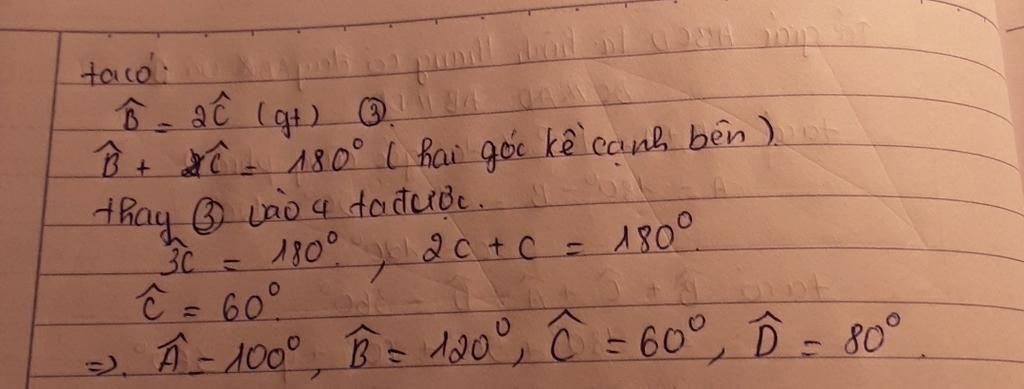 ta có:
B̂ = 2Ĉ (gt) ③.
B̂ + Ĉ = 180° (hai góc kề cạnh bên)
thay ③ vào 4 ta được.
3Ĉ = 180°. , 2C + C = 180°.
Ĉ = 60°.
⇒. Â = 100°, B̂ = 120°, Ĉ = 60°, D̂ = 80°.